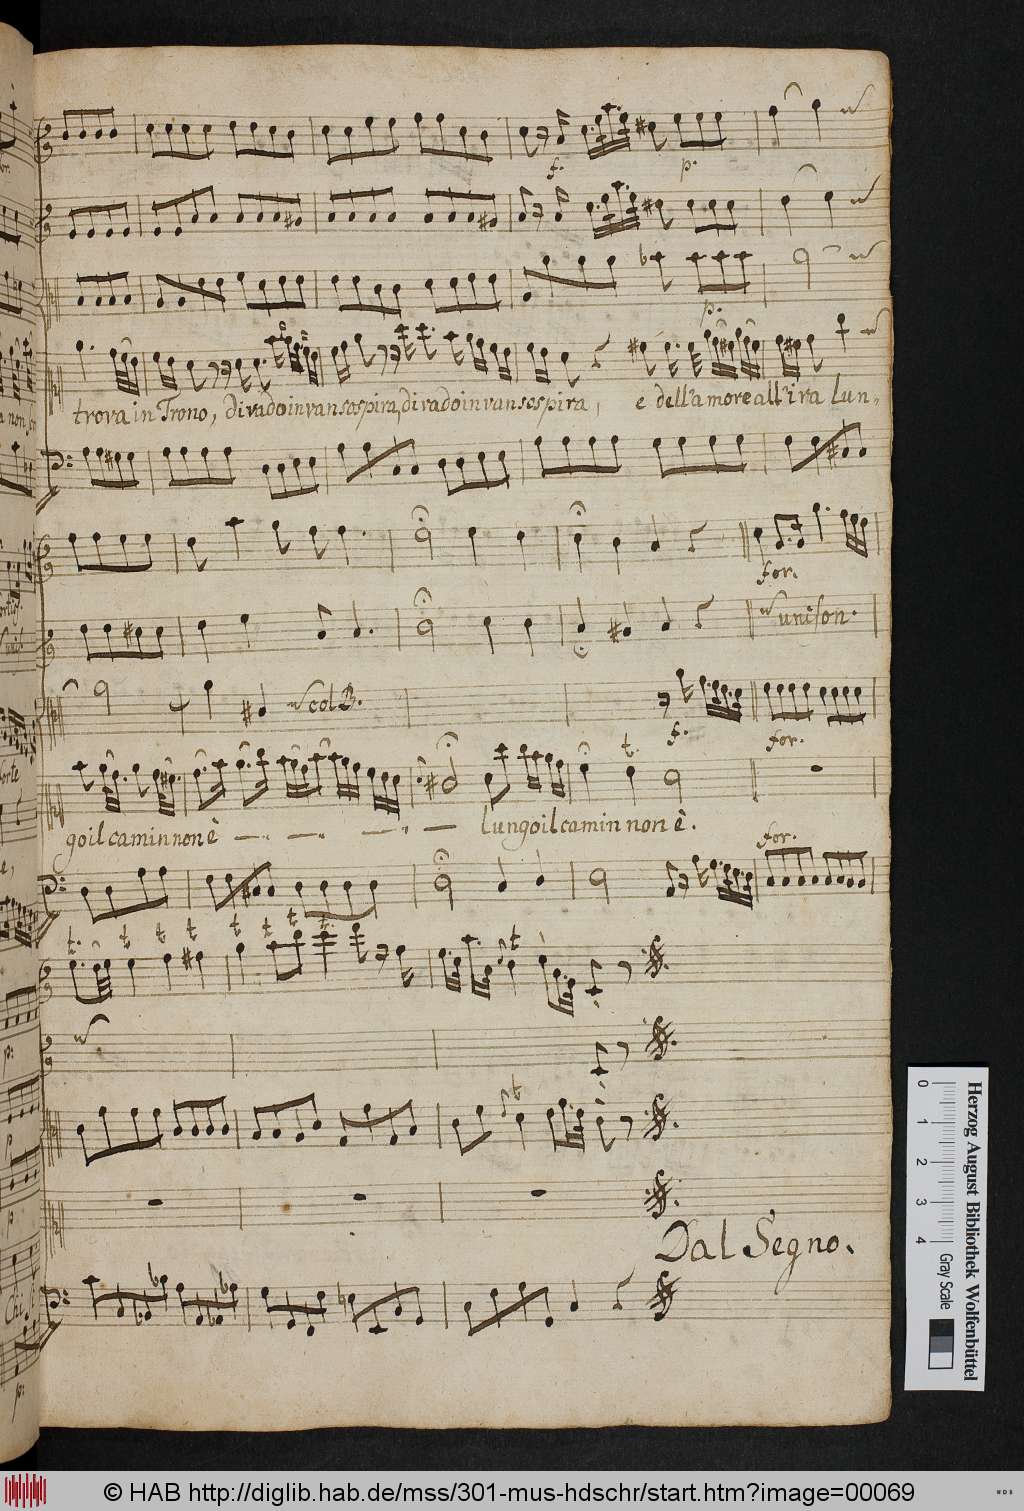 f. p.
p.
trova in Trono, di rado in van sospira, di rado in van sospira, e dell'amore all'ira Lun-
for.
unison.
col B.
f. for.
t.
go il camin non è lungo il camin non è.
for.
t. t t t t t t t t
t
Dal Segno.
Herzog August Bibliothek Wolfenbüttel
0 1 2 3 4
Gray Scale
© HAB http://diglib.hab.de/mss/301-mus-hdschr/start.htm?image=00069
WDB